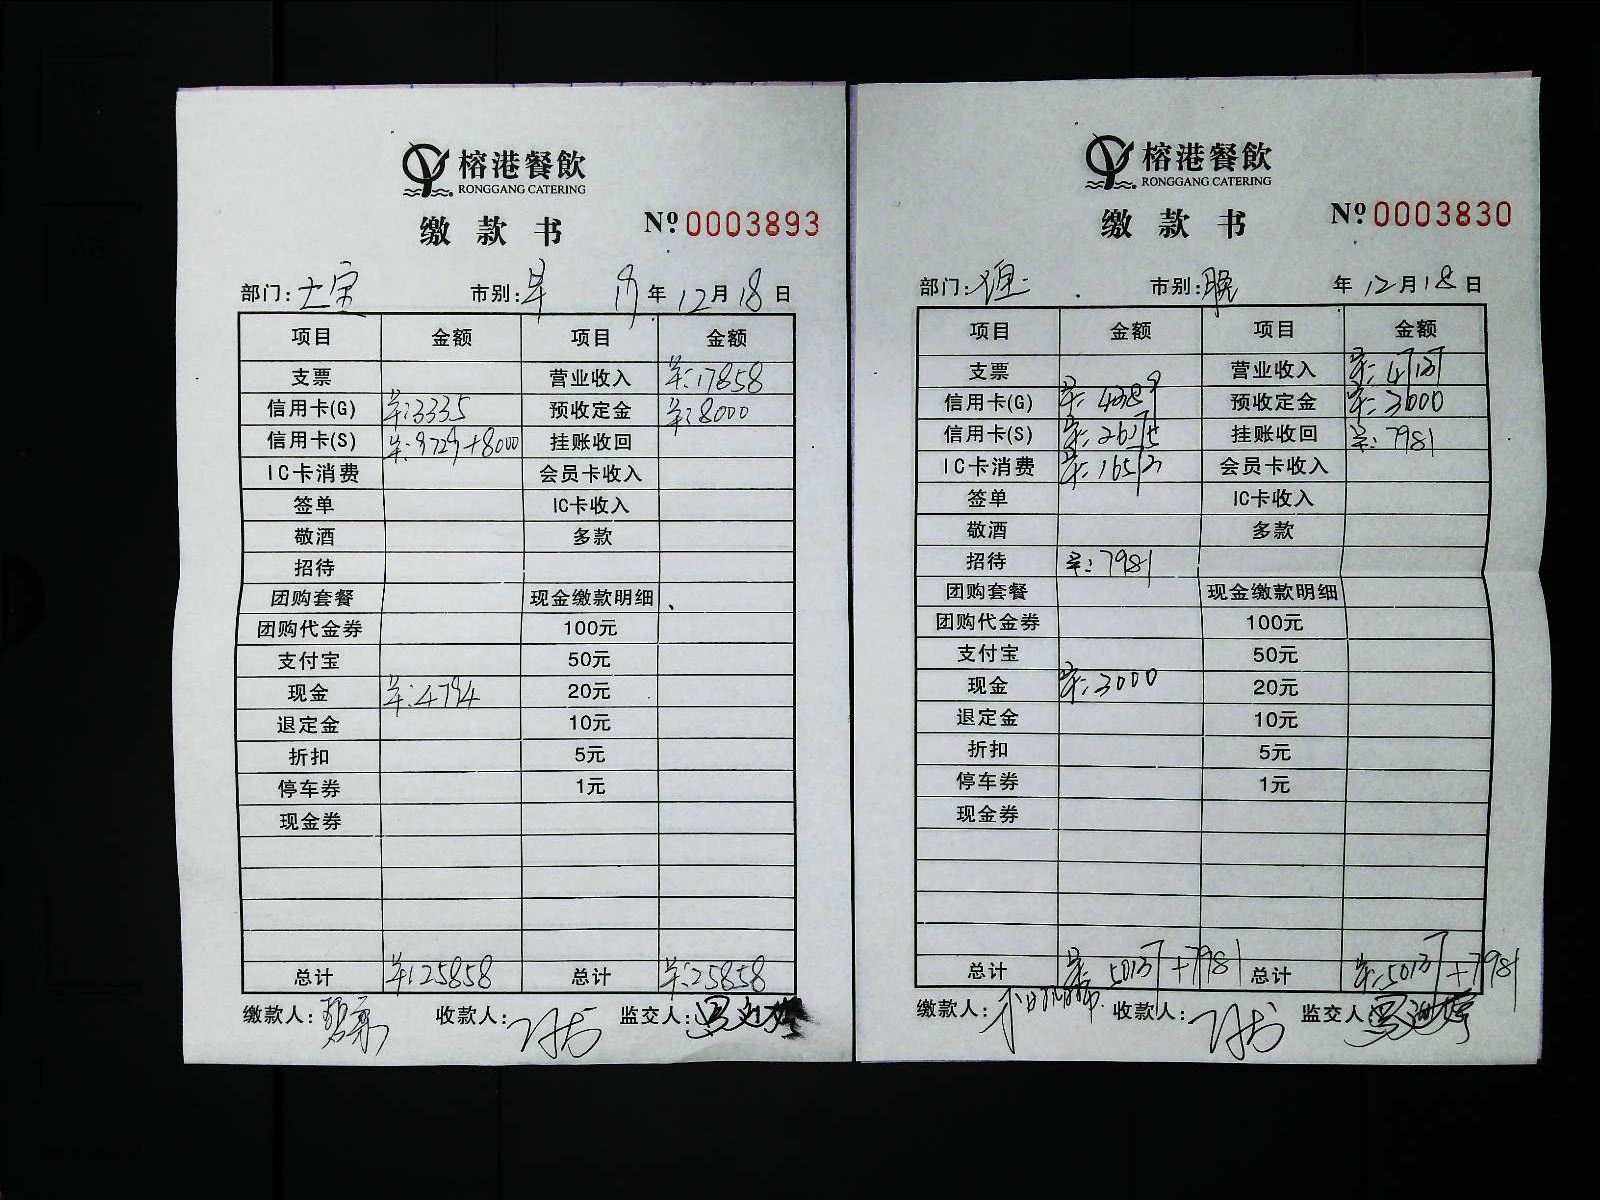 榕港餐飲
RONGGANG CATERING
缴款书 Nº 0003893
部门: 市别: 早 年 12 月 18 日
项目 金额 项目 金额
支票 营业收入 羊:17858
信用卡(G) 羊:3335 预收定金 羊:8000
信用卡(S) 羊:9729+8000 挂账收回
IC卡消费 会员卡收入
签单 IC卡收入
敬酒 多款
招待
团购套餐 现金缴款明细
团购代金券 100元
支付宝 50元
现金 羊:4794 20元
退定金 10元
折扣 5元
停车券 1元
现金券
总计 羊:25858 总计 羊:25858
缴款人: 收款人: 监交人:
榕港餐飲
RONGGANG CATERING
缴款书 Nº 0003830
部门: 市别: 晚 年 12 月 18 日
项目 金额 项目 金额
支票 营业收入
信用卡(G) 预收定金 羊:3000
信用卡(S) 挂账收回 羊:7981
IC卡消费 会员卡收入
签单 IC卡收入
敬酒 多款
招待 羊:7981
团购套餐 现金缴款明细
团购代金券 100元
支付宝 50元
现金 羊:3000 20元
退定金 10元
折扣 5元
停车券 1元
现金券
总计 +7981 总计 +7981
缴款人: 收款人: 监交人